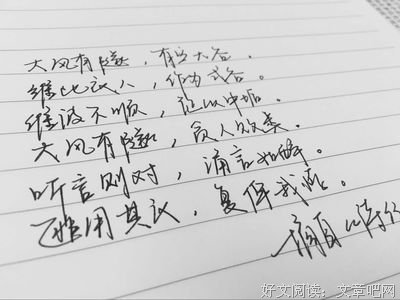 大风有隧，有空大谷。
维此良人，作为式谷。
维彼不顺，征以中垢。
大风有隧，贪人败类。
听言则对，诵言如醉。
匪用其良，复俾我悖。
摘自《诗经
好文阅读：文章吧网